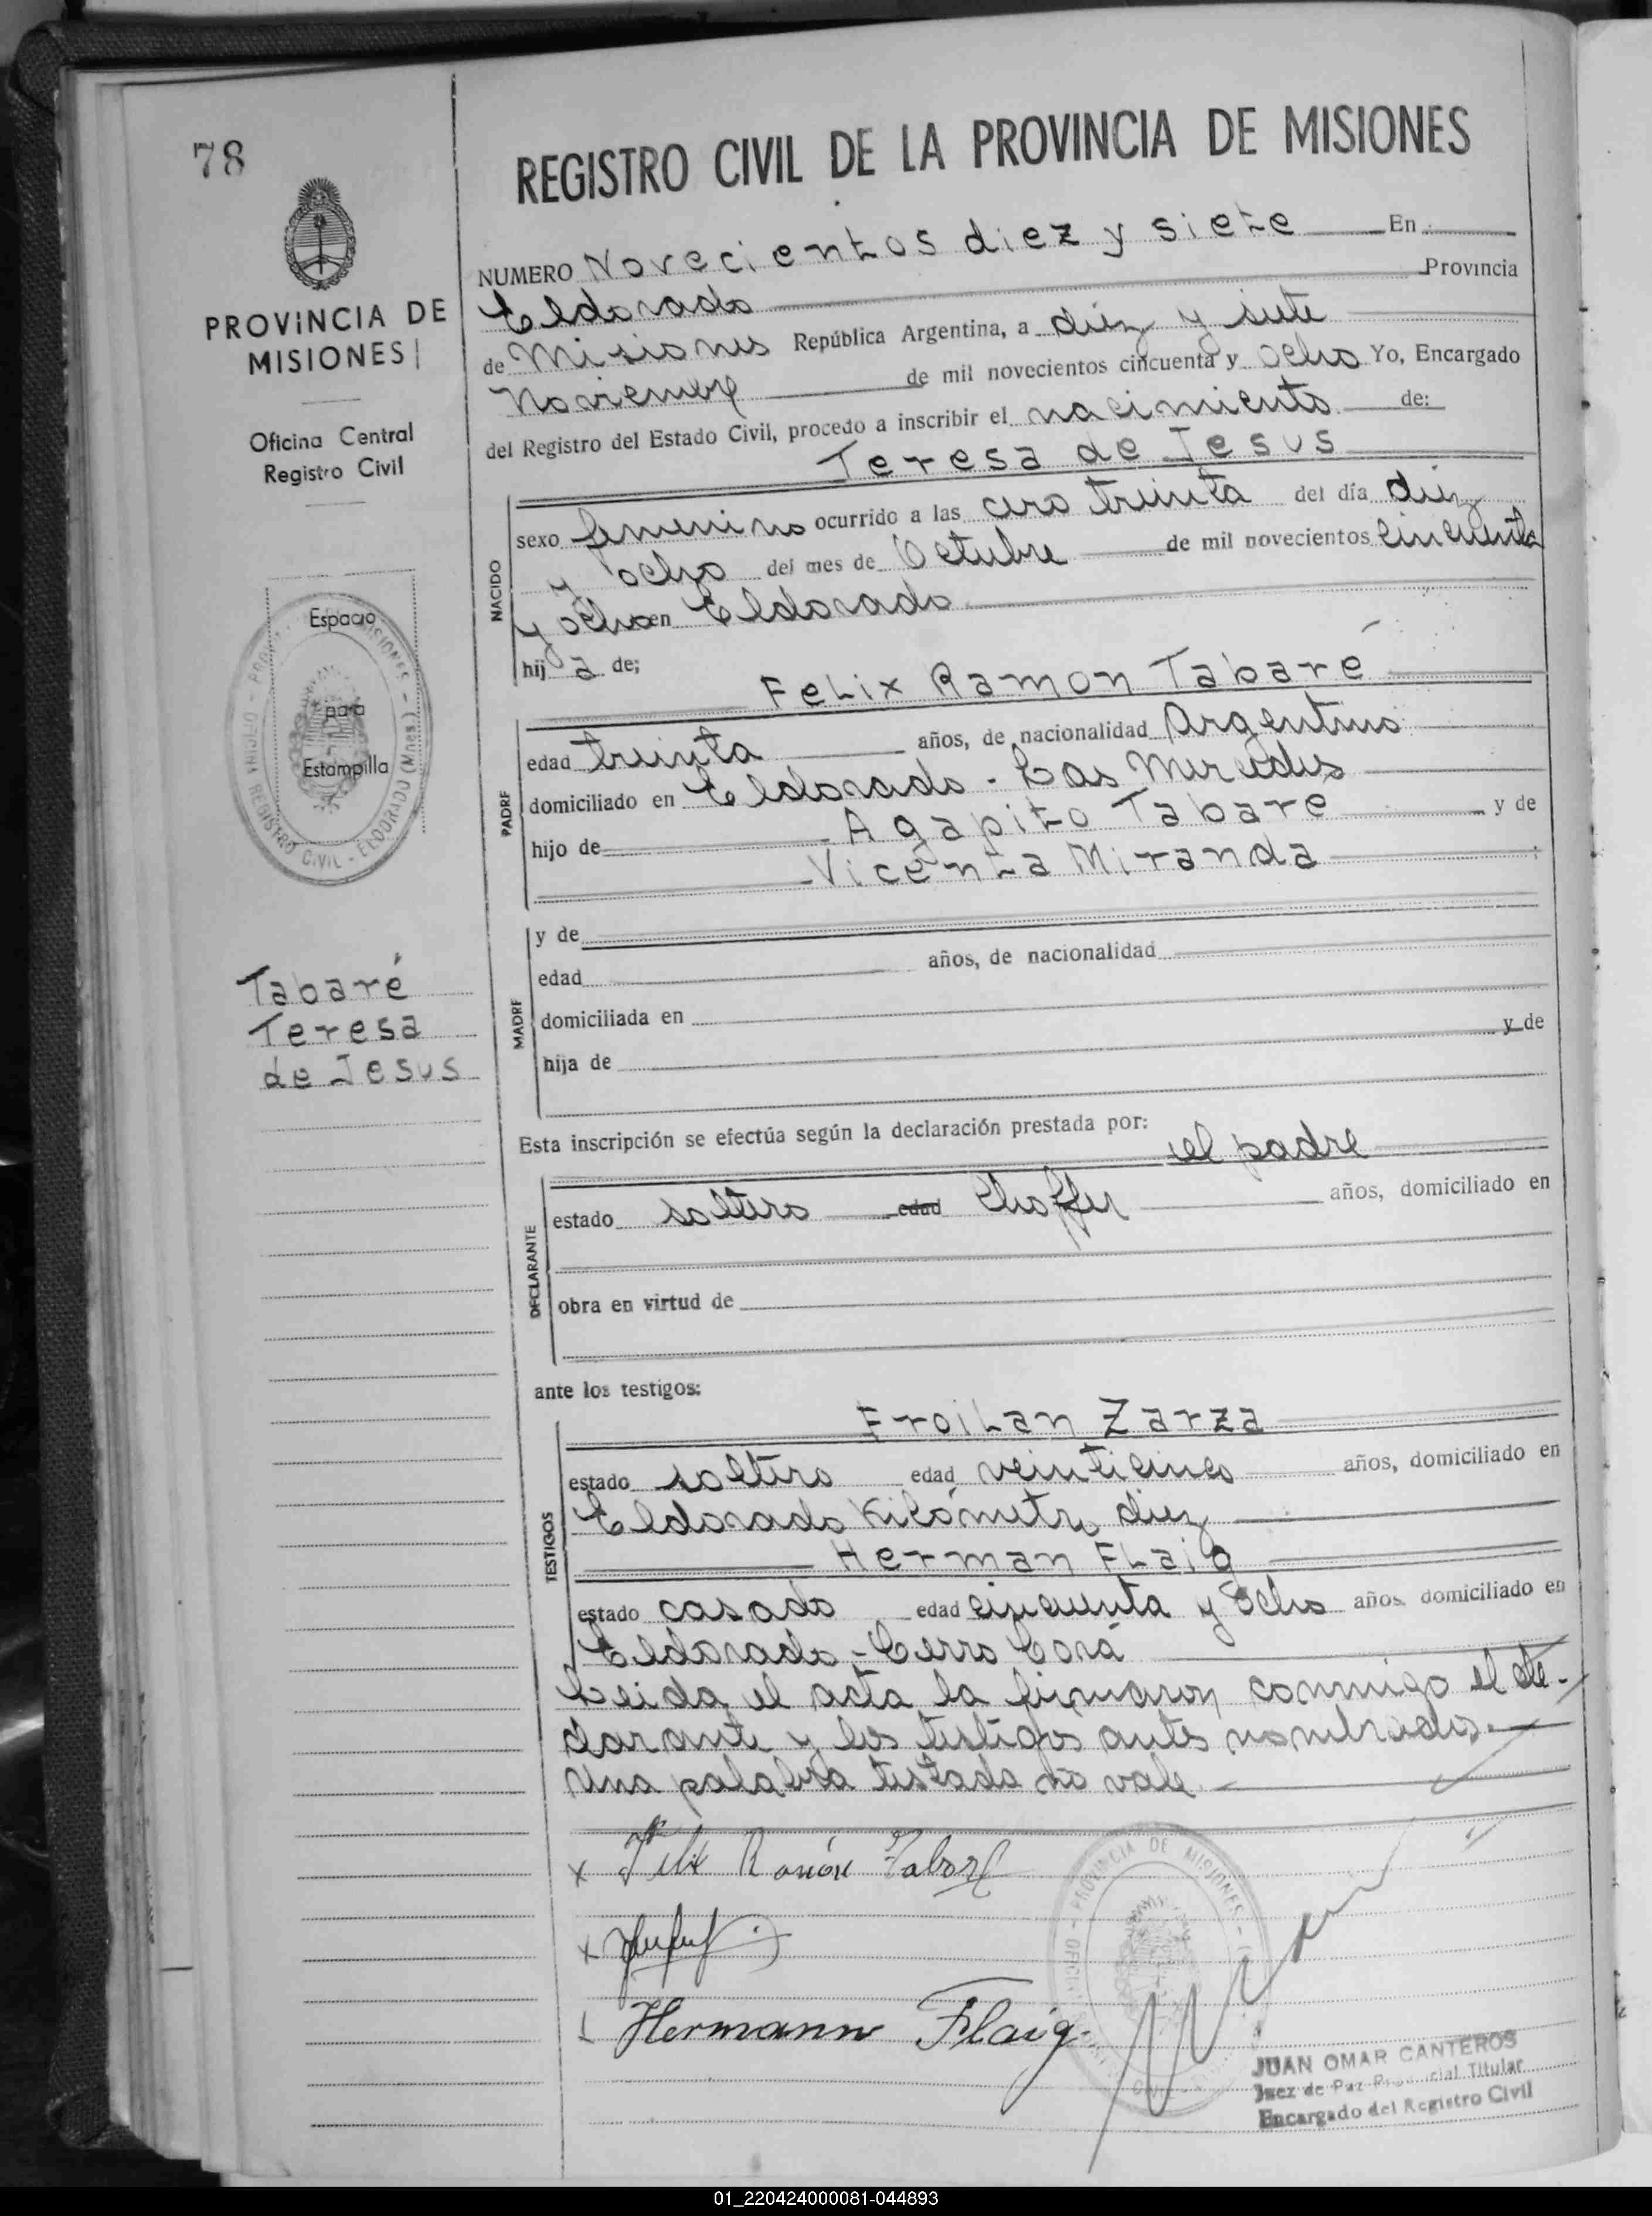 78
REGISTRO CIVIL DE LA PROVINCIA DE MISIONES
PROVINCIA DE
MISIONES
Oficina Central
Registro Civil
Espacio
para
Estampilla
Tabaré
Teresa
de Jesus
NUMERO Novecientos diez y siete En
Eldorado Provincia
de Misiones República Argentina, a diez y siete
Noviembre de mil novecientos cincuenta y ocho Yo, Encargado
del Registro del Estado Civil, procedo a inscribir el nacimiento de:
Teresa de Jesus
NACIDO
sexo femenino ocurrido a las cero treinta del día diez
y ocho del mes de Octubre de mil novecientos cincuenta
y ocho en Eldorado
hij a de;
Felix Ramon Tabaré
PADRE
edad treinta años, de nacionalidad Argentino
domiciliado en Eldorado - Las Mercedes
hijo de Agapito Tabare y de
Vicenta Miranda
MADRE
y de
edad años, de nacionalidad
domiciliada en
hija de y de
Esta inscripción se efectúa según la declaración prestada por:
el padre
DECLARANTE
estado soltero edad Choffer años, domiciliado en
obra en virtud de
ante los testigos:
Froilan Zarza
TESTIGOS
estado soltero edad veinticinco años, domiciliado en
Eldorado Kilómetro diez
Herman Flaig
estado casado edad cincuenta y ocho años domiciliado en
Eldorado - Cerro Corá
Leida el acta la firmaron conmigo el de-
clarante y los testigos antes nombrados.
Una palabra testada no vale.
x Felix Ramón Tabaré
x
Hermann Flaig
PROVINCIA DE MISIONES
JUAN OMAR CANTEROS
Juez de Paz Provincial Titular
Encargado del Registro Civil
01_220424000081-044893